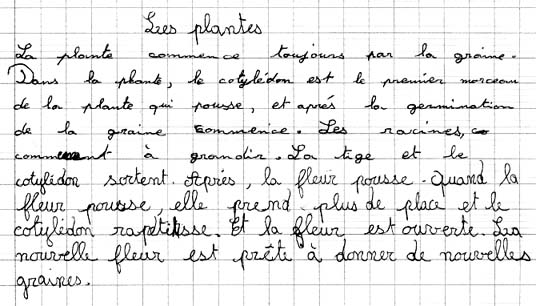 Les plantes
La plante commence toujours par la graine.
Dans la plante, le cotylédon est le premier morceau
de la plante qui pousse, et après la germination
de la graine commence. Les racines, co
commencent à grandir. La tige et le
cotylédon sortent. Après, la fleur pousse. Quand la
fleur pousse, elle prend plus de place et le
cotylédon rapetitisse. Et la fleur est ouverte. La
nouvelle fleur est prête à donner de nouvelles
graines.